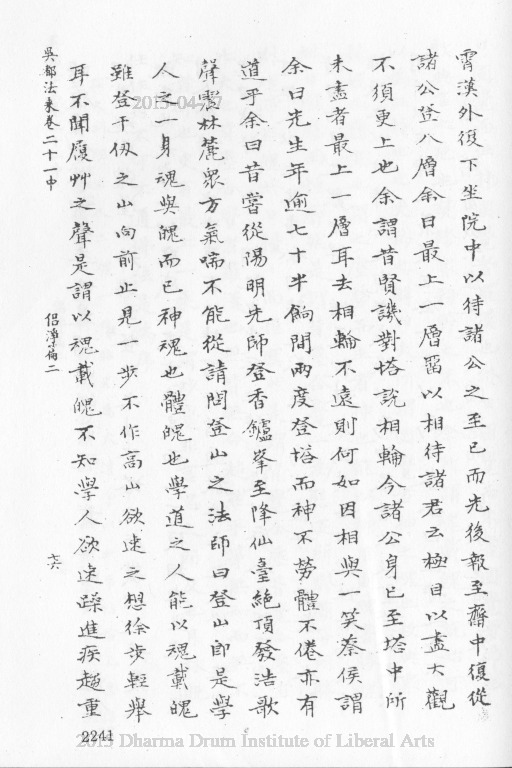 霄漢外復下坐院中以待諸公之至已而先後報至齋中復從
諸公登八層余曰最上一層留以相待諸君云極目以盡大觀
不須更上也余謂昔賢譏對塔說相輪今諸公身已至塔中所
未盡者最上一層耳去相輪不遠則何如因相與一笑蔡侯謂
余曰先生年逾七十半餉間兩度登塔而神不勞體不倦亦有
道乎余曰昔嘗從陽明先師登香鑪峯至降仙臺絕頂發浩歌
聲震林麓眾方氣喘不能從請問登山之法師曰登山即是學
人之一身魂與魄而已神魂也體魄也學道之人能以魂載魄
雖登千仭之山向前止見一步不作高山欲速之想徐步輕舉
耳不聞履艸之聲是謂以魂載魄不知學人欲速躁進疾趨重
吳都法乘卷二十一中
侣淨篇二
六
2241
2013-04-27
2013 Dharma Drum Institute of Liberal Arts